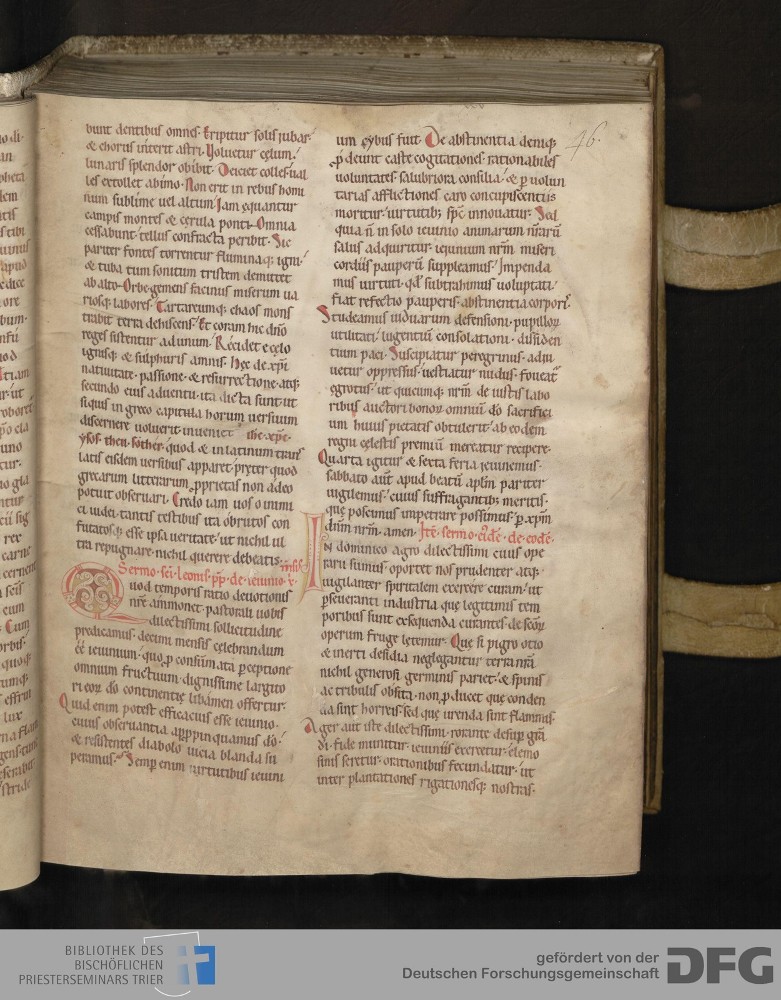 bunt dentibus omnes. Eripitur solis iubar.
& chorus interit astri. Uoluetur cęlum.
lunaris splendor obibit. Deiciet colles. ual
les extollet ab imo. Non erit in rebus homi
num sublime uel altum. Iam ęquantur
campis montes & cęrula ponti. Omnia
cessabunt. tellus confracta peribit. Sic
pariter fontes torrentur fluminaq; igni.
& tuba tum sonitum tristem demittet
ab alto. Orbe gemens facinus miserum ua
riosq; labores. Tartareumq; chaos mons
trabit terra dehiscens. Et coram hic dn̄o
reges sistentur ad unum. Recidet e cęlo
ignisq; & sulphuris amnis. Hęc de xp̄i
natiuitate. passione. & resurrectione. atq;
secundo eius aduentu. ita dicta sunt. ut
siquis in greco capitula horum uersuum
discernere uoluerit. inueniet ihc. xp̄c.
yſos. theu. sother. quod & in latinum trans
latis eisdem uersibus apparet. pręter quod
grecarum litterarum ꝓprietas non adeo
potuit obseruari. Credo iam uos o inimi
ci iudei. tantis testibus ita obrutos con
futatosq; esse ipsa ueritate. ut nichil ul
tra repugnare. nichil querere debeatis.
Sermo. sc̄i. leonis. pp̄. de. ieiunio. x. m̄sis
Quod temporis ratio deuotionis
nr̄ę ammonet. pastorali uobis
dilectissimi sollicitudine
predicamus. decimi mensis celebrandum
eē ieiunium. quo ꝓ consūmata perceptione
omnium fructuum. dignissime largito
ri eoꝝ dō continentię libamen offertur.
Quid enim potest efficacius esse ieiunio.
cuius obseruantia appropinquamus dō.
& resistentes diabolo uicia blanda su
peramus. Semp̱ enim uirtutibus ieiuni
46.
um cybus fuit. De abstinentia deniq;
ꝓdeunt caste cogitationes. rationabiles
uoluntates. salubriora consilia. & ꝑ uolun
tarias afflictiones caro concupiscentiis
moritur. uirtutib; sp̄c innouatur. Sed
quia n̄ in solo ieiunio animarum nr̄arū
salus adquiritur. ieiunium nr̄m miseri
cordiis pauperū suppleamus. Impenda
mus uirtuti. qd̄ subtrahimus uoluptati.
fiat refectio pauperis. abstinentia corporis.
Studeamus uiduarum defensioni. pupilloꝝ
utilitati. lugentiū consolationi. dissiden
tium paci. Suscipiatur peregrinus. adiu
uetur oppressus. uestiatur nudus. foueat᷑
ęgrotus. ut quicumq; nr̄m de iustis labo
ribus auctori bonoꝝ omniū dō sacrifici
um huius pietatis obtulerit. ab eodem
regni cęlestis premiū mereatur recipere.
Quarta igitur & sexta feria ieiunemus.
sabbato aut̄ apud beatū apl̄m pariter
uigilemus. cuius suffragantib; meritis.
quę poscimus impetrare possimus. ꝑ xp̄m
dn̄m nr̄m. amen. Itē. sermo. eiꝰdē. de. eodē.
In dominico agro dilectissimi cuius ope
rarii sumus oportet nos prudenter atq;
uigilanter spiritalem exercere curam. ut
ꝑseueranti industria quę legitimis tem
poribus sunt exsequenda curantes. de sc̄oꝝ
operum fruge lętemur. Quę si pigro otio
& inerti desidia neglegantur. terra nr̄a
nichil generosi germinis pariet. & spinis
ac tribulis obsita. non ꝓducet quę conden
da sint horreis. sed quę urenda sint flammis.
Ager aut̄ iste dilectissimi. rorante desuper grā
dī. fide munitur. ieiuniis exercetur. elemo
sinis seretur. orationibus fecundatur. ut
inter plantationes rigationesq; nostras.
BIBLIOTHEK DES
BISCHÖFLICHEN
PRIESTERSEMINARS TRIER
gefördert von der
Deutschen Forschungsgemeinschaft
DFG